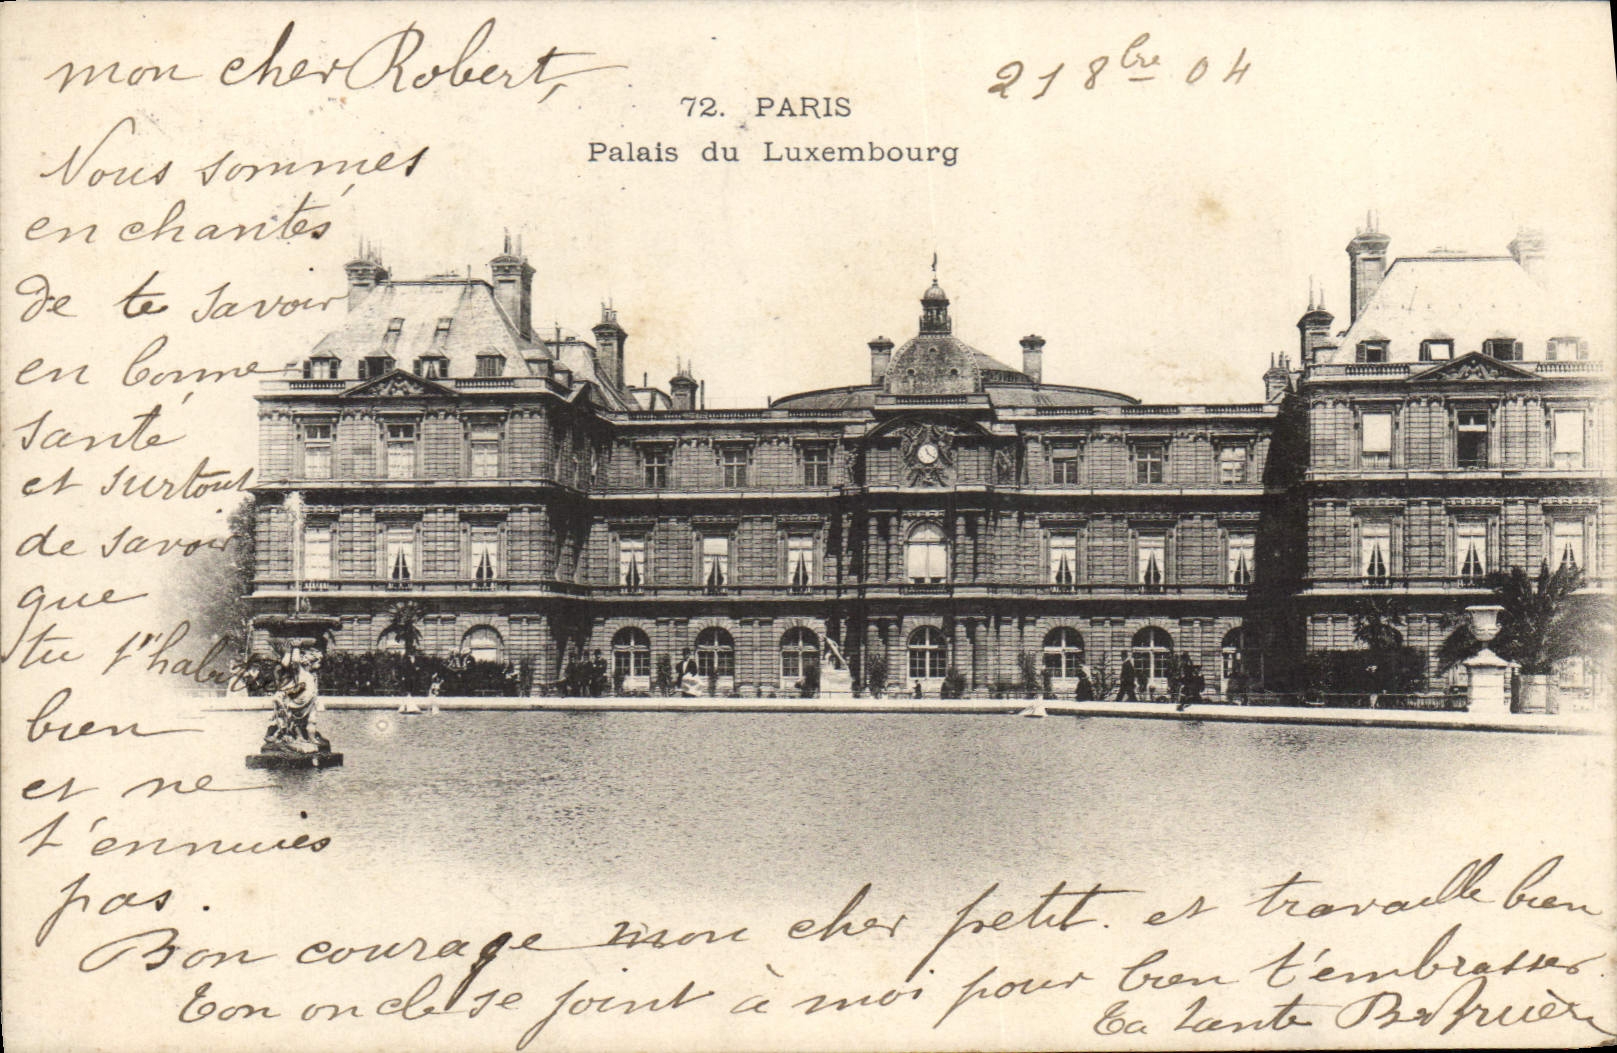 mon cher Robert,
21 8bre 04
72. PARIS
Palais du Luxembourg
Nous sommes
enchantés
de te savoir
en bonne
santé
et surtout
de savoir
que
tu t'habitues
bien
et ne
t'ennuies
pas.
Bon courage mon cher petit. et travaille bien
Ton oncle se joint à moi pour bien t'embrasser.
Ta tante